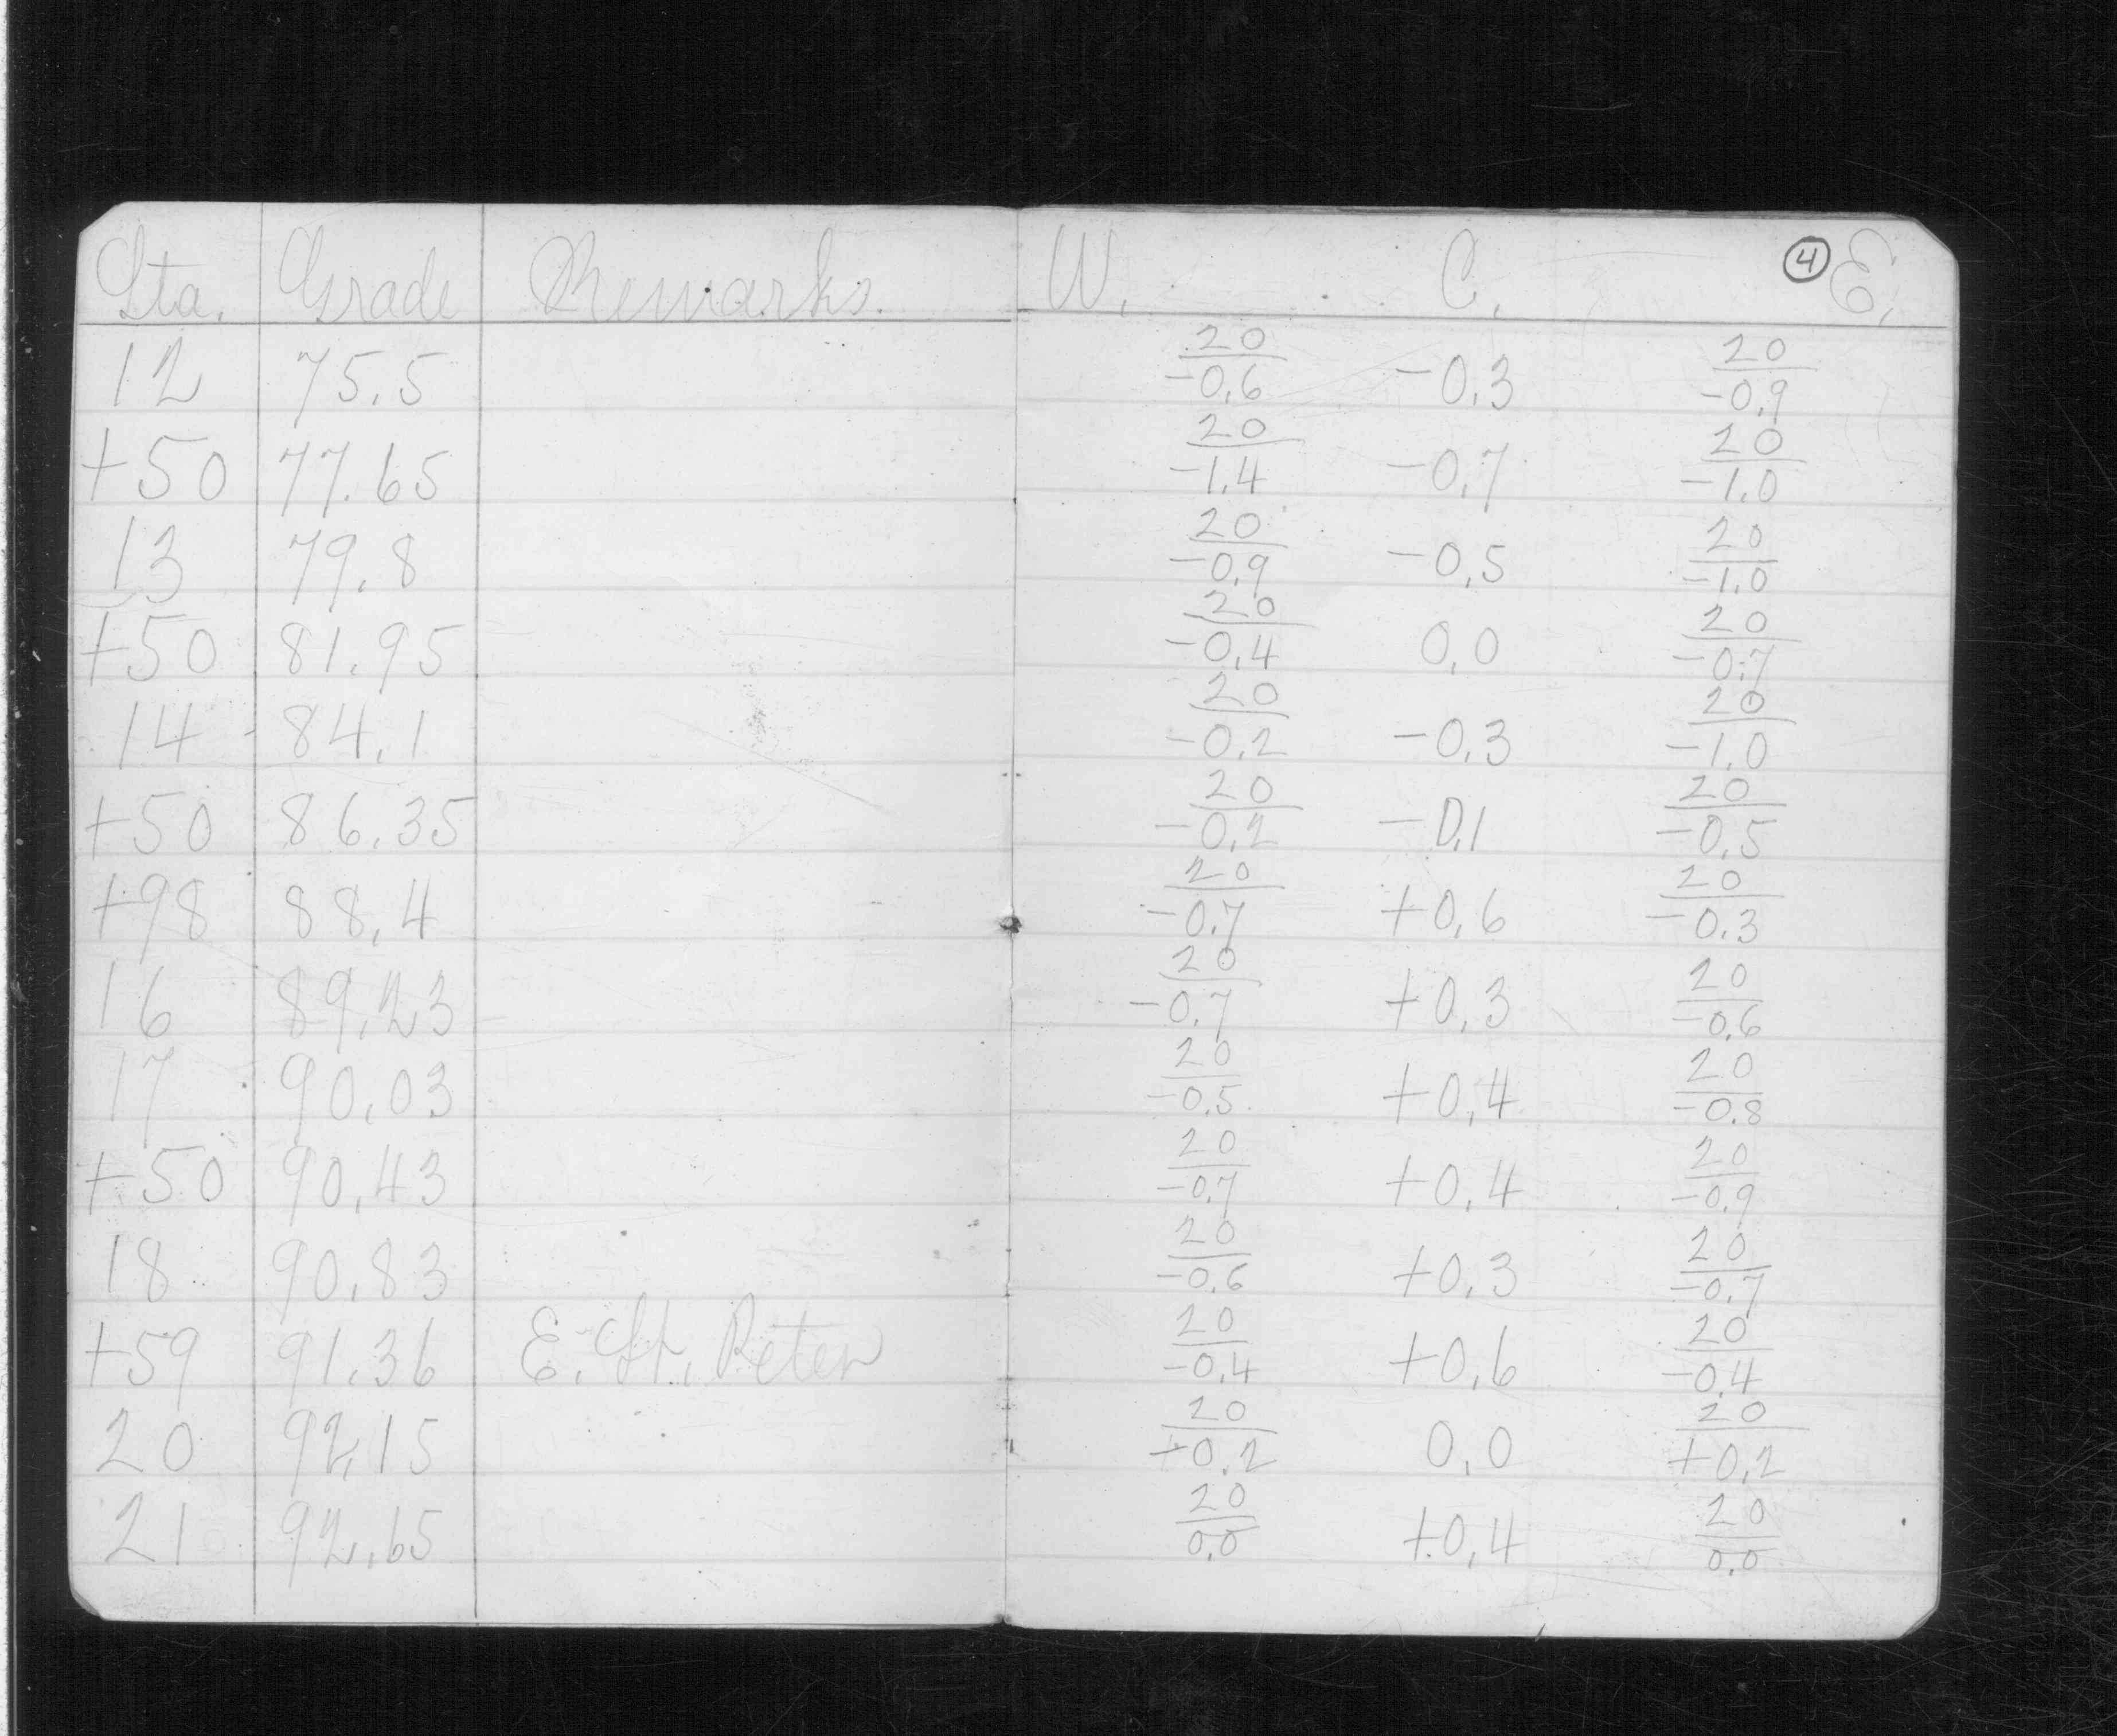 Sta. Grade Remarks. W. C. 4 E.
12 75.5 20/-0.6 -0.3 20/-0.9
+50 77.65 20/-1.4 -0.7 20/-1.0
13 79.8 20/-0.9 -0.5 20/-1.0
+50 81.95 20/-0.4 0.0 20/-0.7
14 84.1 20/-0.2 -0.3 20/-1.0
+50 86.35 20/-0.2 -0.1 20/-0.5
+98 88.4 20/-0.7 +0.6 20/-0.3
16 89.23 20/-0.7 +0.3 20/-0.6
17 90.03 20/-0.5 +0.4 20/-0.8
+50 90.43 20/-0.7 +0.4 20/-0.9
18 90.83 20/-0.6 +0.3 20/-0.7
+59 91.36 E. St. Peter 20/-0.4 +0.6 20/-0.4
20 92.15 20/+0.2 0.0 20/+0.2
21 92.65 20/0.0 +0.4 20/0.0